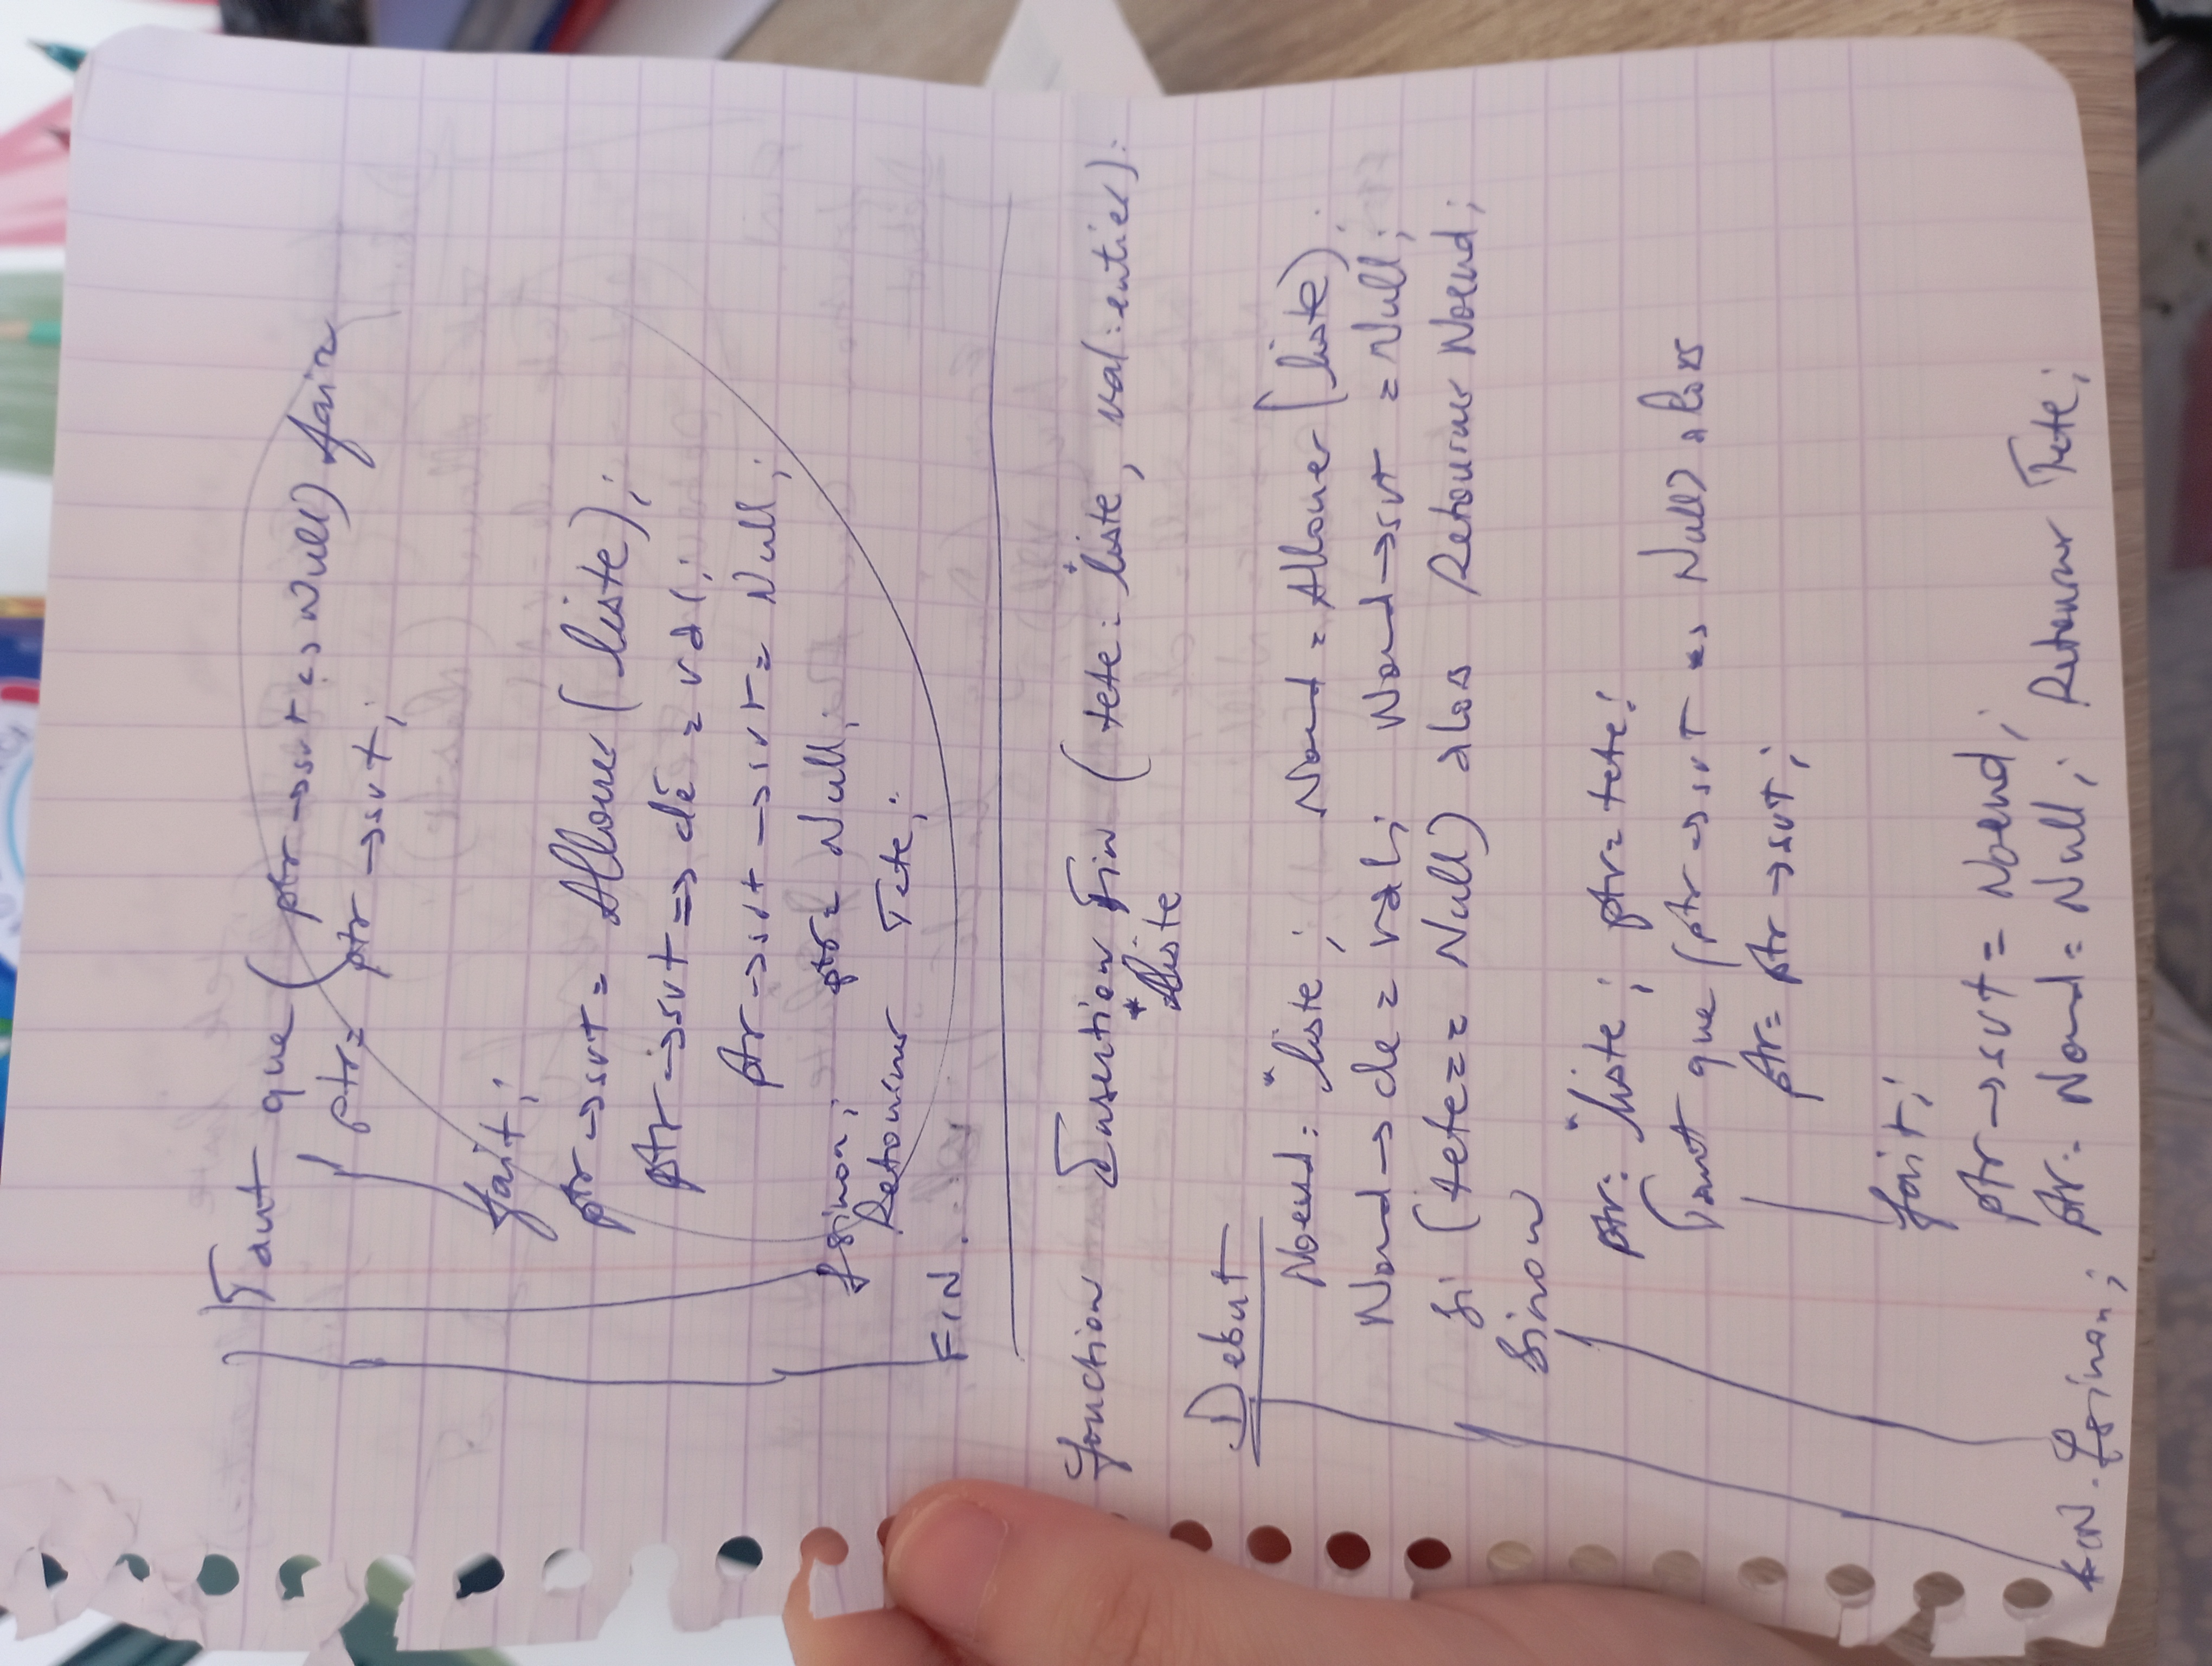 Tant que ( ptr →svt <> Null) faire
ptr= ptr →svt;
fait;
ptr →svt = Allouer ( liste);
ptr →svt => clé = val;
ptr →svt →svt = Null;
fsinon; ptr= Null;
Retourner Tete;
FIN.
fonction Insertion Fin ( tete: *liste, val:entier):
*liste
Debut
Noeud: *liste; Noeud = Allouer (liste);
Noeud → cle = val; Noeud →svt = Null;
Si (tete== Null) alors Retourner Noeud;
Sinon
ptr: *liste; ptr= tete;
Tant que (ptr →svt <> Null) alors
ptr= ptr →svt;
fait;
ptr →svt = Noeud;
FIN. fsinon; ptr= Noeud= Null; Retourner Tete;